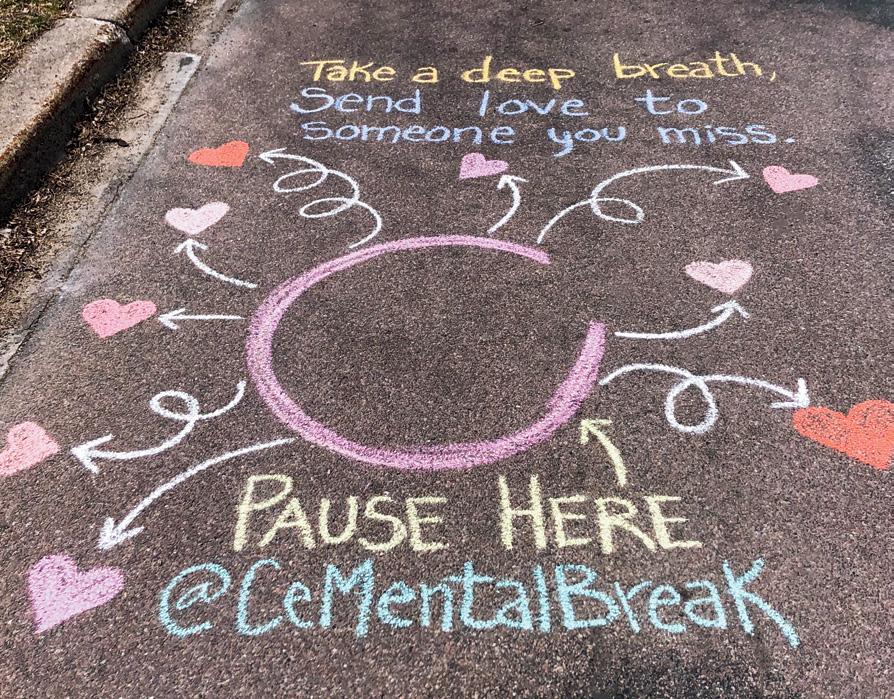 Take a deep breath,
Send love to
someone you miss.
PAUSE HERE
@CeMentalBreak